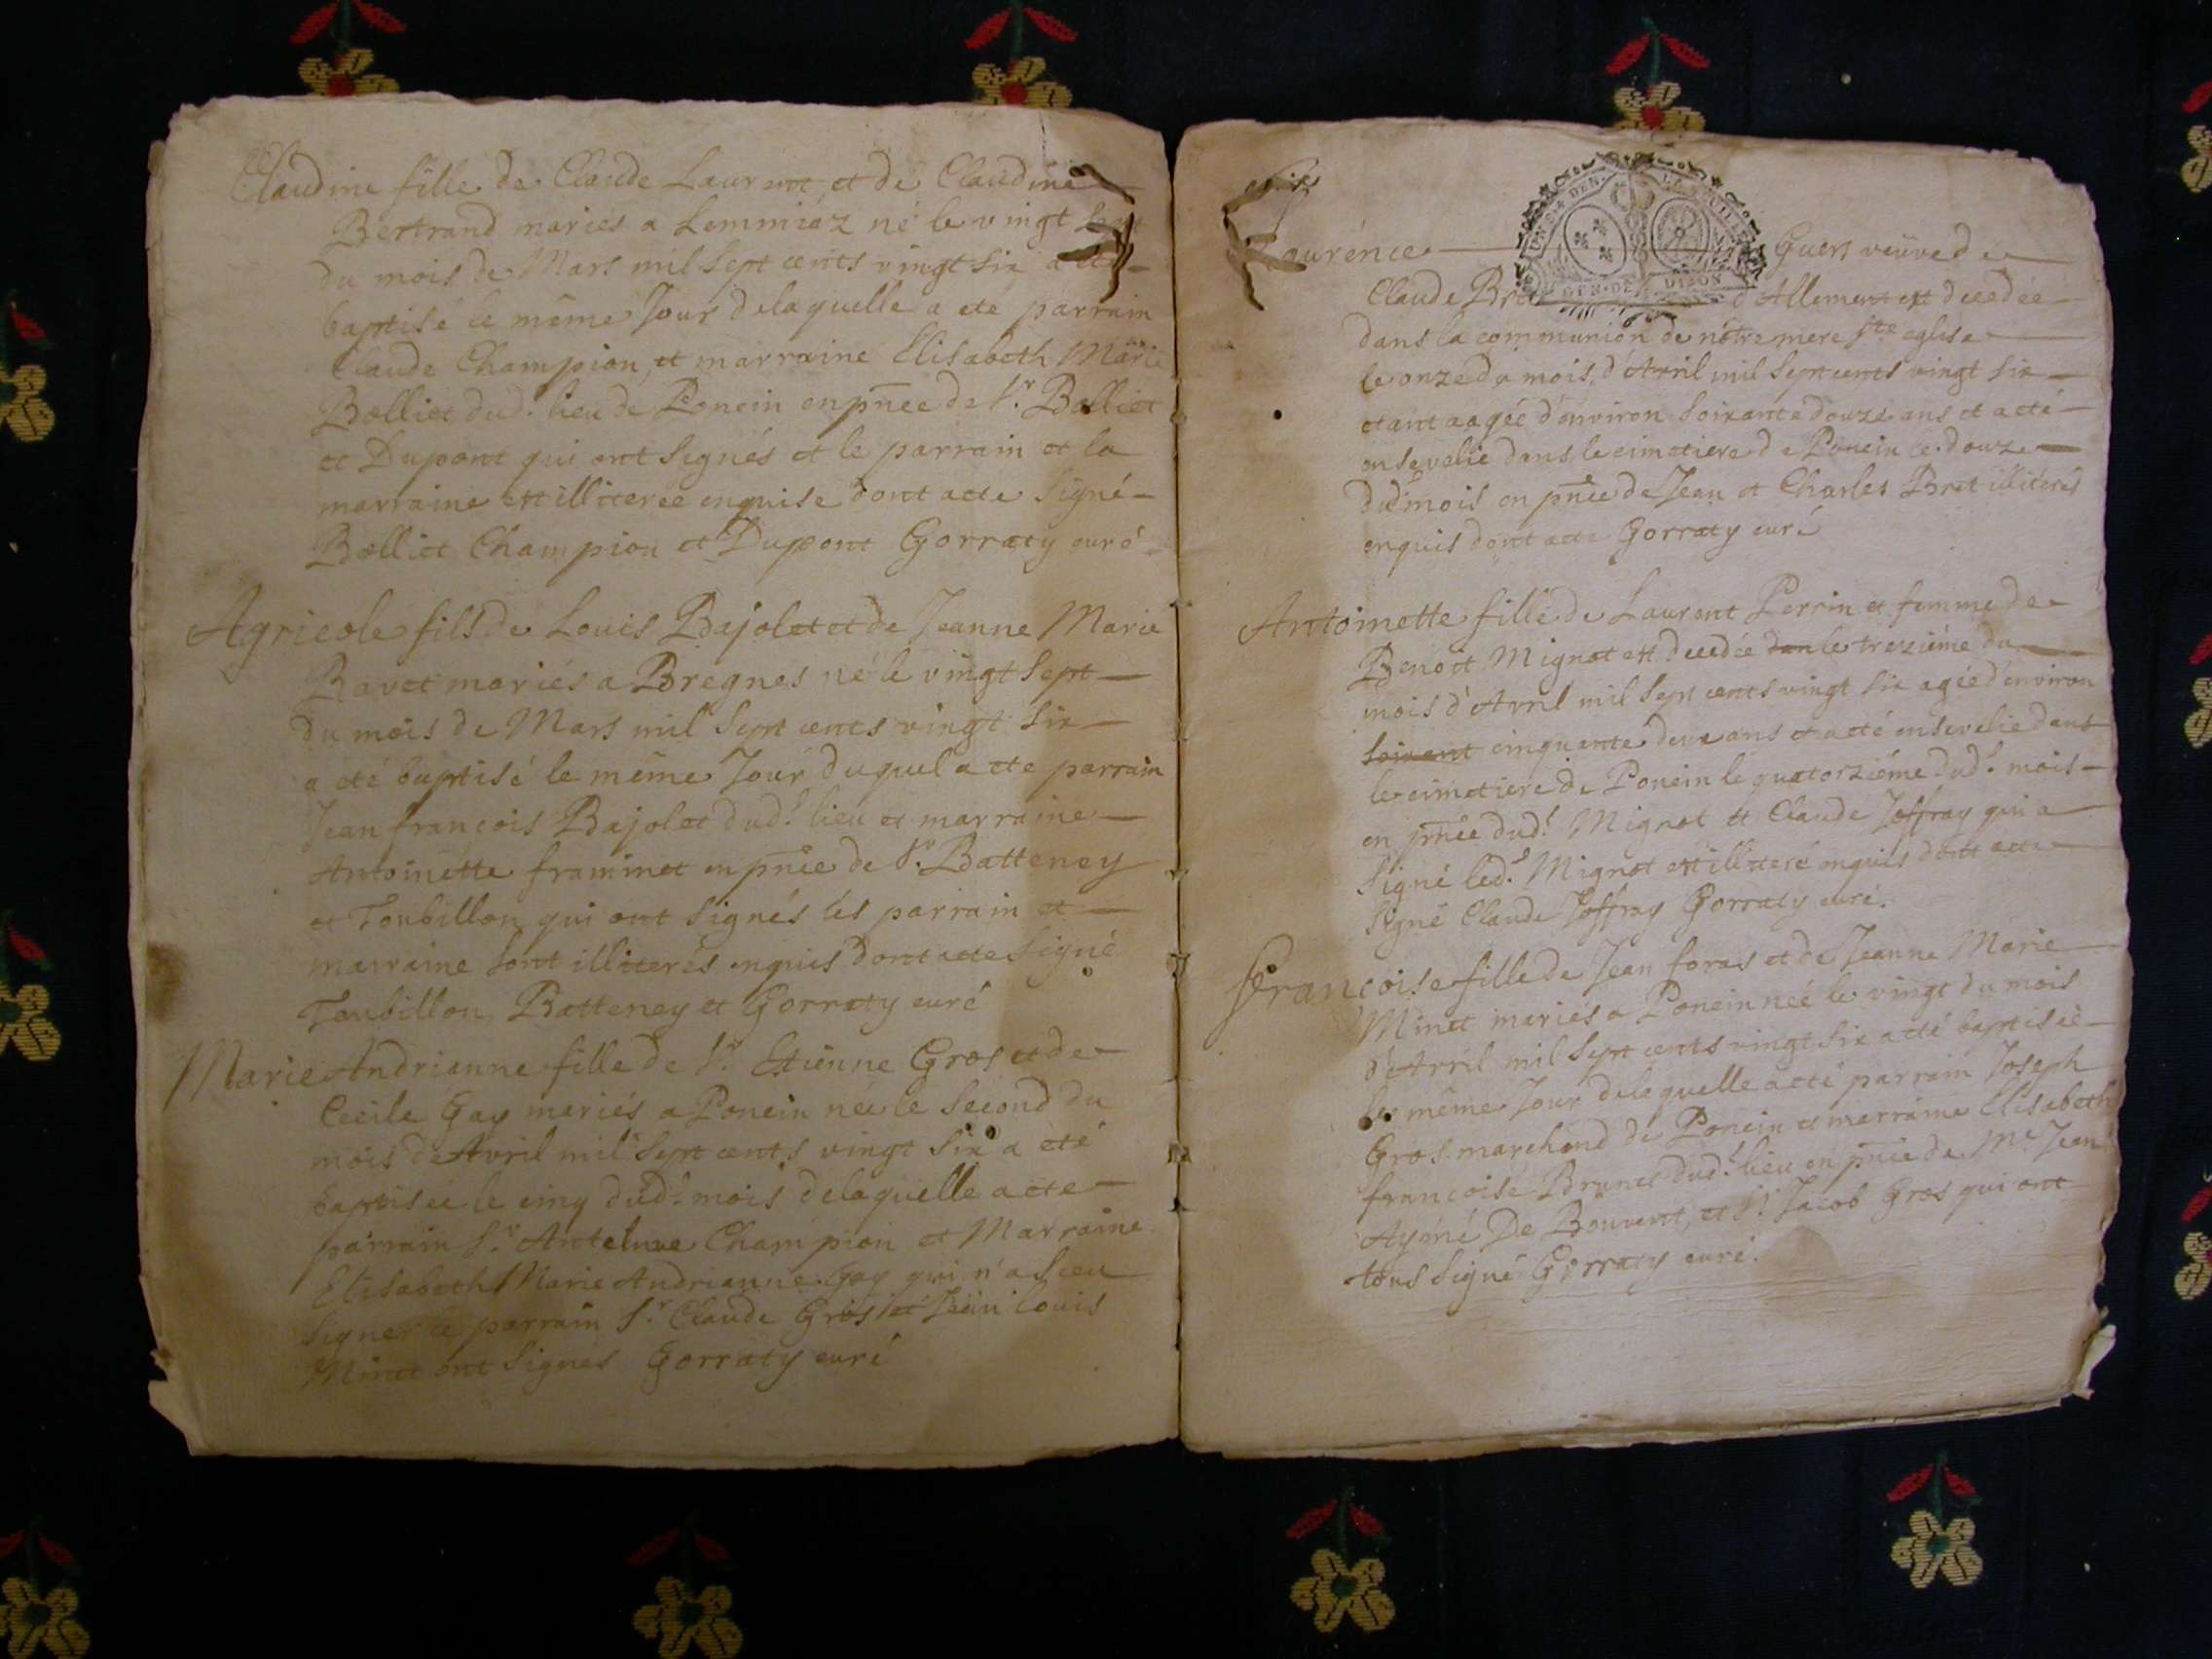 Claudine fille de Claude Laurent et de Claudine
Bertrand mariés a Lemmiaz né le vingt
du mois de Mars mil Sept cents vingt Six a été
baptisé le même Jour delaquelle a eté parrain
Claude Champion, et marraine Elisabeth Marie
Bolliet dud.t lieu de Poncin en pñce de S.r Bolliet
et Dupont qui ont Signés et le parrain et la
marraine est illiterée enquise dont acte Signé
Bolliet Champion et Dupont Gorraty curé
Agricole fils de Louis Bajolet et de Jeanne Marie
Ravet mariés a Bregnes né le vingt Sept
du mois de Mars mil Sept cents vingt Six
a eté baptisé le même Jour duquel a ete parrain
Jean françois Bajolet dud.t lieu et marraine
Antoinette framinet en pñce de S.r Batteney
et Toubillon qui ont Signés les parrain et
marraine Sont illiterés enquis dont acte Signé
Toubillon, Batteney et Gorraty curé
Marie Andrianne fille de S.r Etienne Gros et de
Cecile Gay mariés a Poncin née le Second du
mois de Avril mil Sept cents vingt Six a eté
baptisée le cinq dud.t mois delaquelle a ete
parrain S.r Antelme Champion et Marraine
Elisabeth Marie Andrianne Gay qui n'a Sceu
Signer le parrain S.r Claude Gros et Jean Louis
Minet ont Signés Gorraty curé
Laurence Guers veuve de
Claude Bret d'Allement est decedée
dans la communion de nôtre mere S.te eglise
le onze du mois d'Avril mil Sept cents vingt Six
etant aagée d'environ Soixante douze ans et a eté
ensevelie dans le cimetiere de Poncin le douze
dud.t mois en pñce de Jean et Charles Bret illiterés
enquis dont acte Gorraty curé
Antoinette fille de Laurent Perrin et femme de
Benoit Mignot est decedée dan le trezième du
mois d'Avril mil Sept cents vingt Six agée d'environ
Soixant cinquante deux ans et a eté ensevelie dans
le cimetiere de Poncin le quatorzième dud.t mois
en pñce dud.t Mignot et Claude Joffray qui a
Signé led.t Mignot est illiteré enquis dont acte
Signé Claude Joffray Gorraty curé.
françoise fille de Jean foras et de Jeanne Marie
Minet mariés a Poncin née le vingt du mois
d'Avril mil Sept cents vingt Six a eté baptisée
le même Jour delaquelle a eté parrain Joseph
Gros marchand de Poncin et marraine Elisabeth
françoise Brunet dud.t lieu en pñce de M.e Jean
Aymé De Bouvent, et S.r Jacob Gros qui ont
tous Signé Gorraty curé.